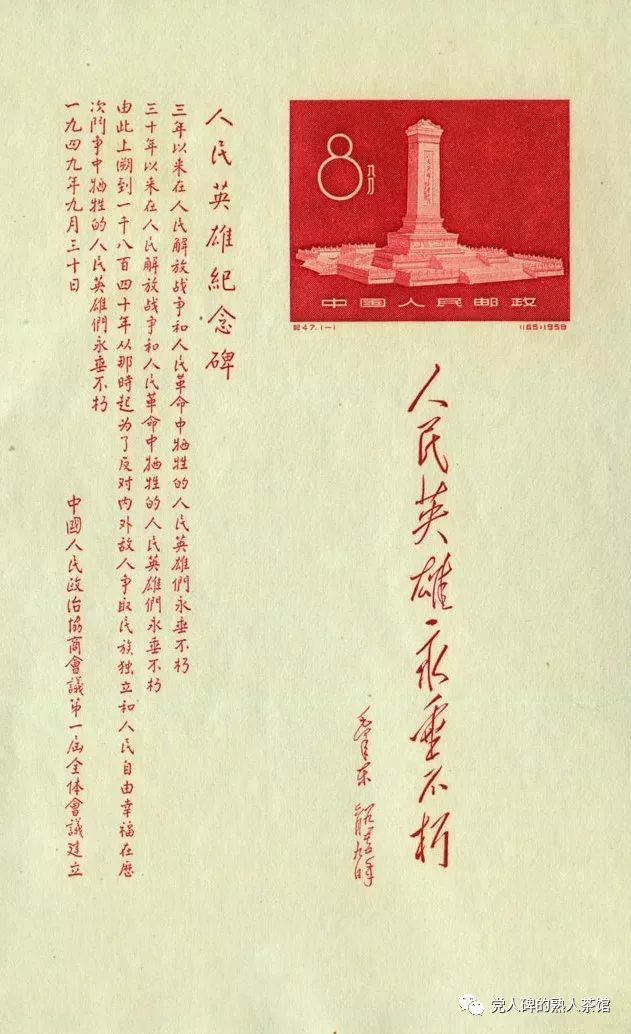 8分
中国人民邮政
纪47.(一)
(165)1958
人民英雄永垂不朽
毛泽东
人民英雄紀念碑
三年以来在人民解放战争和人民革命中牺牲的人民英雄們永垂不朽
三十年以来在人民解放战争和人民革命中牺牲的人民英雄們永垂不朽
由此上溯到一千八百四十年从那時起为了反对内外敌人争取民族独立和人民自由幸福在歷
次鬥争中牺牲的人民英雄們永垂不朽
一九四九年九月三十日
中國人民政治協商會議第一届全体會議建立
党人碑的熟人茶馆